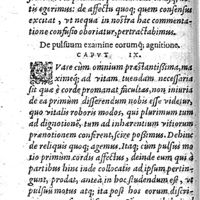 tis egerimus: de affectu quoq; quem consensus
excusat, ut nequa in nostra hac commenta-
tione confusio oboriatur, pertractabimus.
De pulsuum examine eorumq; agnitione.
CAPVT IX.
Vare cùm omnium præstantissima, ma
ximeq; ad vitam tuendam necessaria
sit quæ à corde promanat facultas, non iniuria
de ea primùm disserendum nobis esse videtur,
quo vitalis roboris modos, qui plurimum tum
ad dignotionē, tum ad instantium futurorum
prænotionem conferunt, scire possimus. Dehinc
de reliquis quoq; agemus. Itaq; cùm pulsus mo
tio primùm cordis affectus, deinde eum qui à
partibus huic inde collocatis ad ipsum pertin-
gunt, prodat, in hoc studendum est, ut
pulsuū motus atq; ita post hos eorum